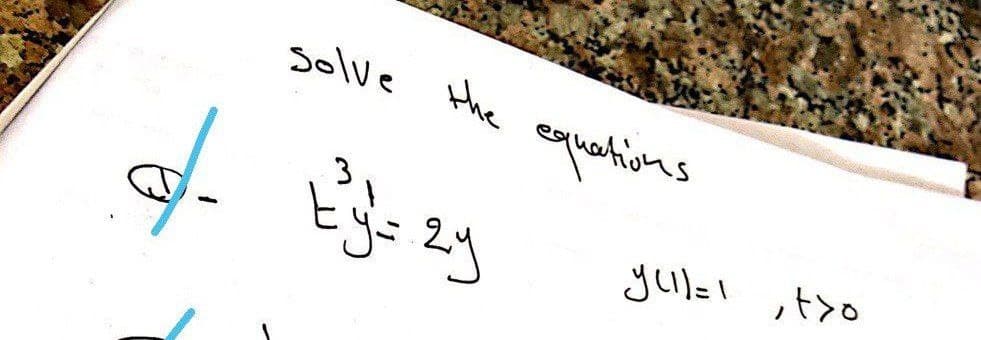 solve the equations
1- t³y' = 2y y(1)=1 , t>0